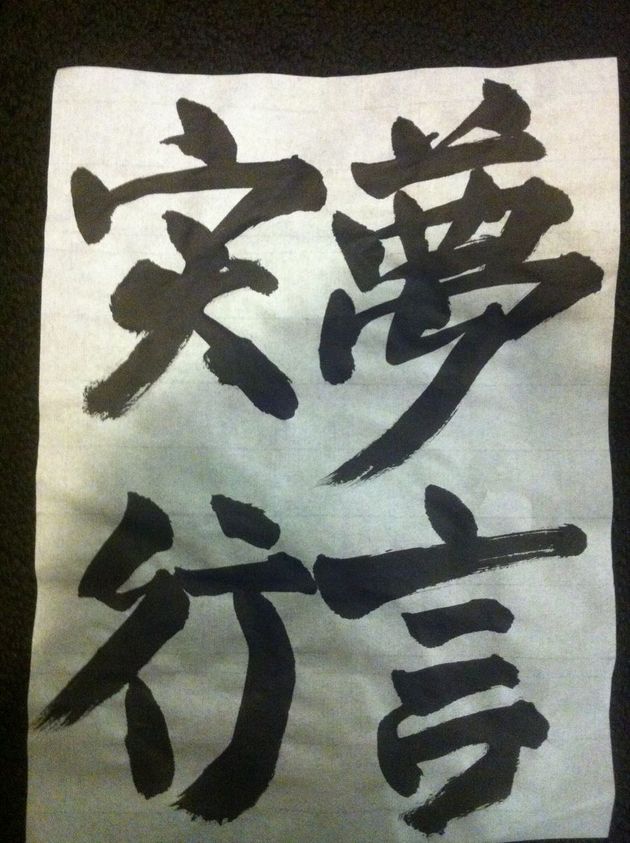 夢言
実行